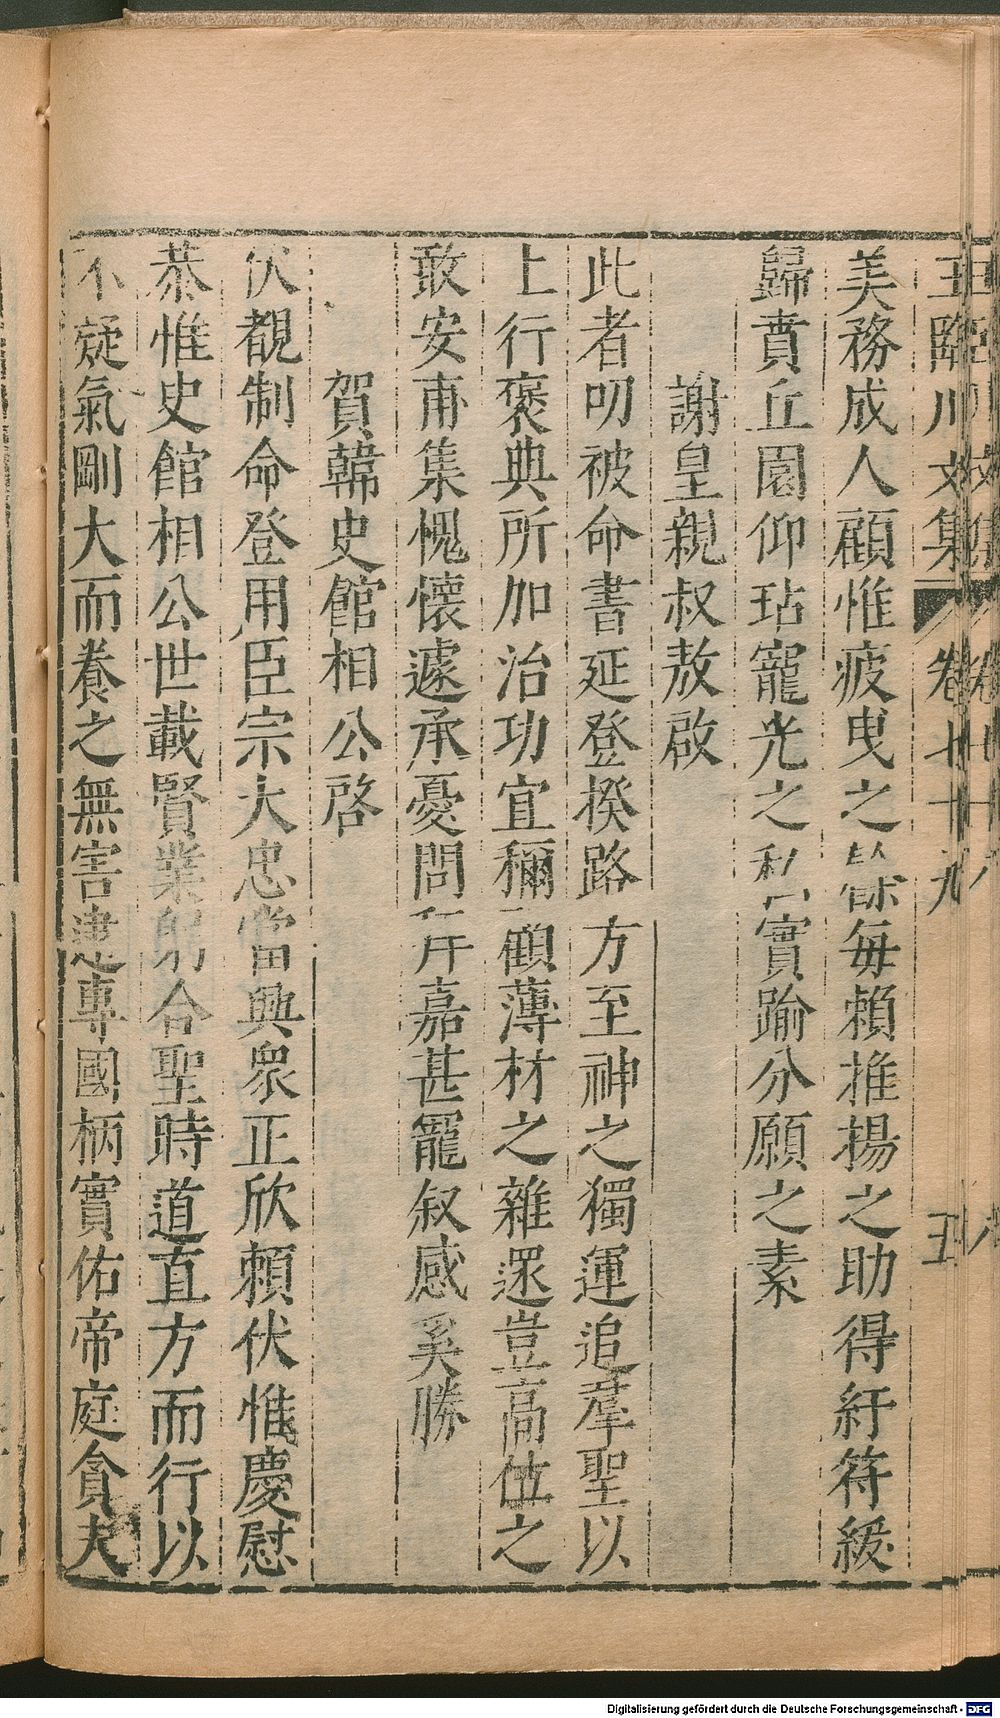 王臨川文集 卷七十九 五
美務成人顧惟疲曳之餘每賴推揚之助得紆符綬
歸賁丘園仰玷寵光之私實踰分願之素
謝皇親叔敖啟
此者叨被命書延登揆路方至神之獨運追羣聖以
上行褒典所加治功宜稱顧薄材之雜遝豈高位之
敢安甫集愧懷遽承憂問嘉甚寵叙感奚勝
賀韓史館相公啓
伏覩制命登用臣宗大忠當興衆正欣賴伏惟慶慰
恭惟史館相公世載賢業躬合聖時道直方而行以
不疑氣剛大而養之無害逮專國柄實佑帝庭貪夫
Digitalisierung gefördert durch die Deutsche Forschungsgemeinschaft - DFG